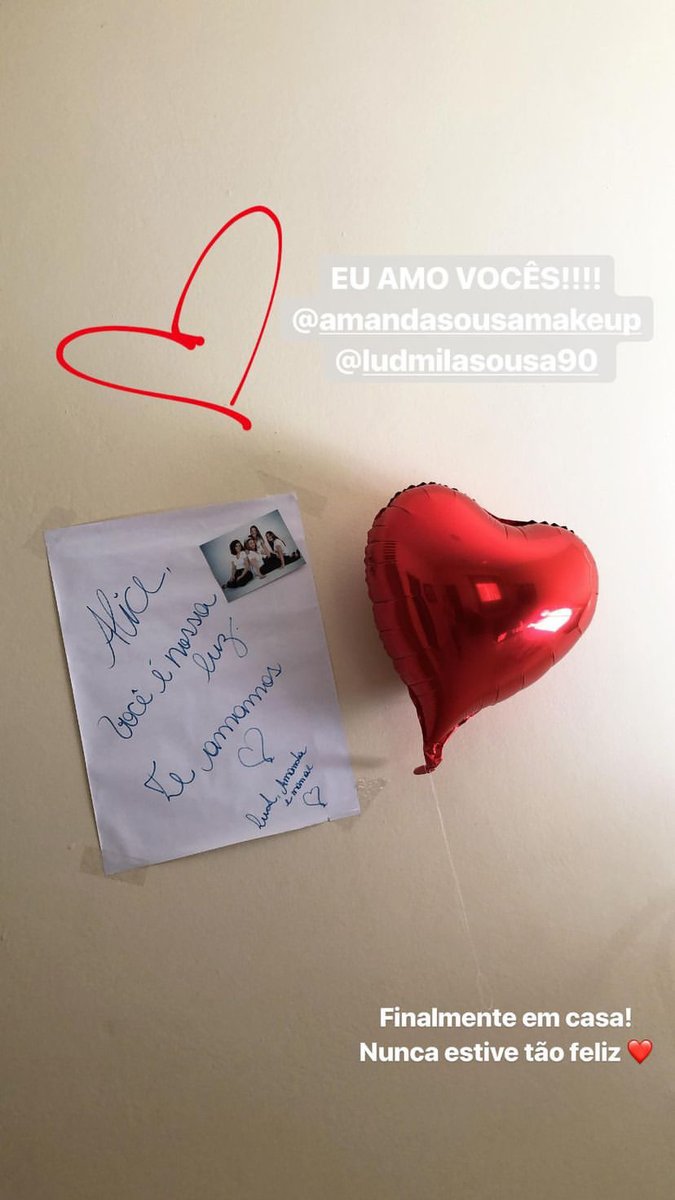 EU AMO VOCÊS!!!!
@amandasousamakeup
@ludmilasousa90
Alice,
Você é nossa
luz.
Te amamos
Lud, Amanda
e mamãe
Finalmente em casa!
Nunca estive tão feliz ❤️